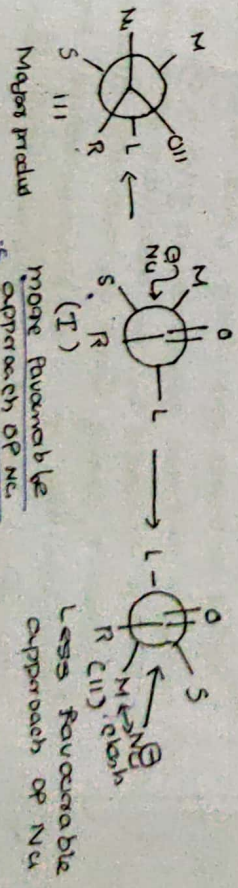 M OH
Nu
S L
R
III
Major produd
O
M
⊖
Nu
S L
R
(I)
more favourable
approach of Nu
O
S
L
R
M ↔ Nu⊖
(II) clash
Less favourable
approach of Nu